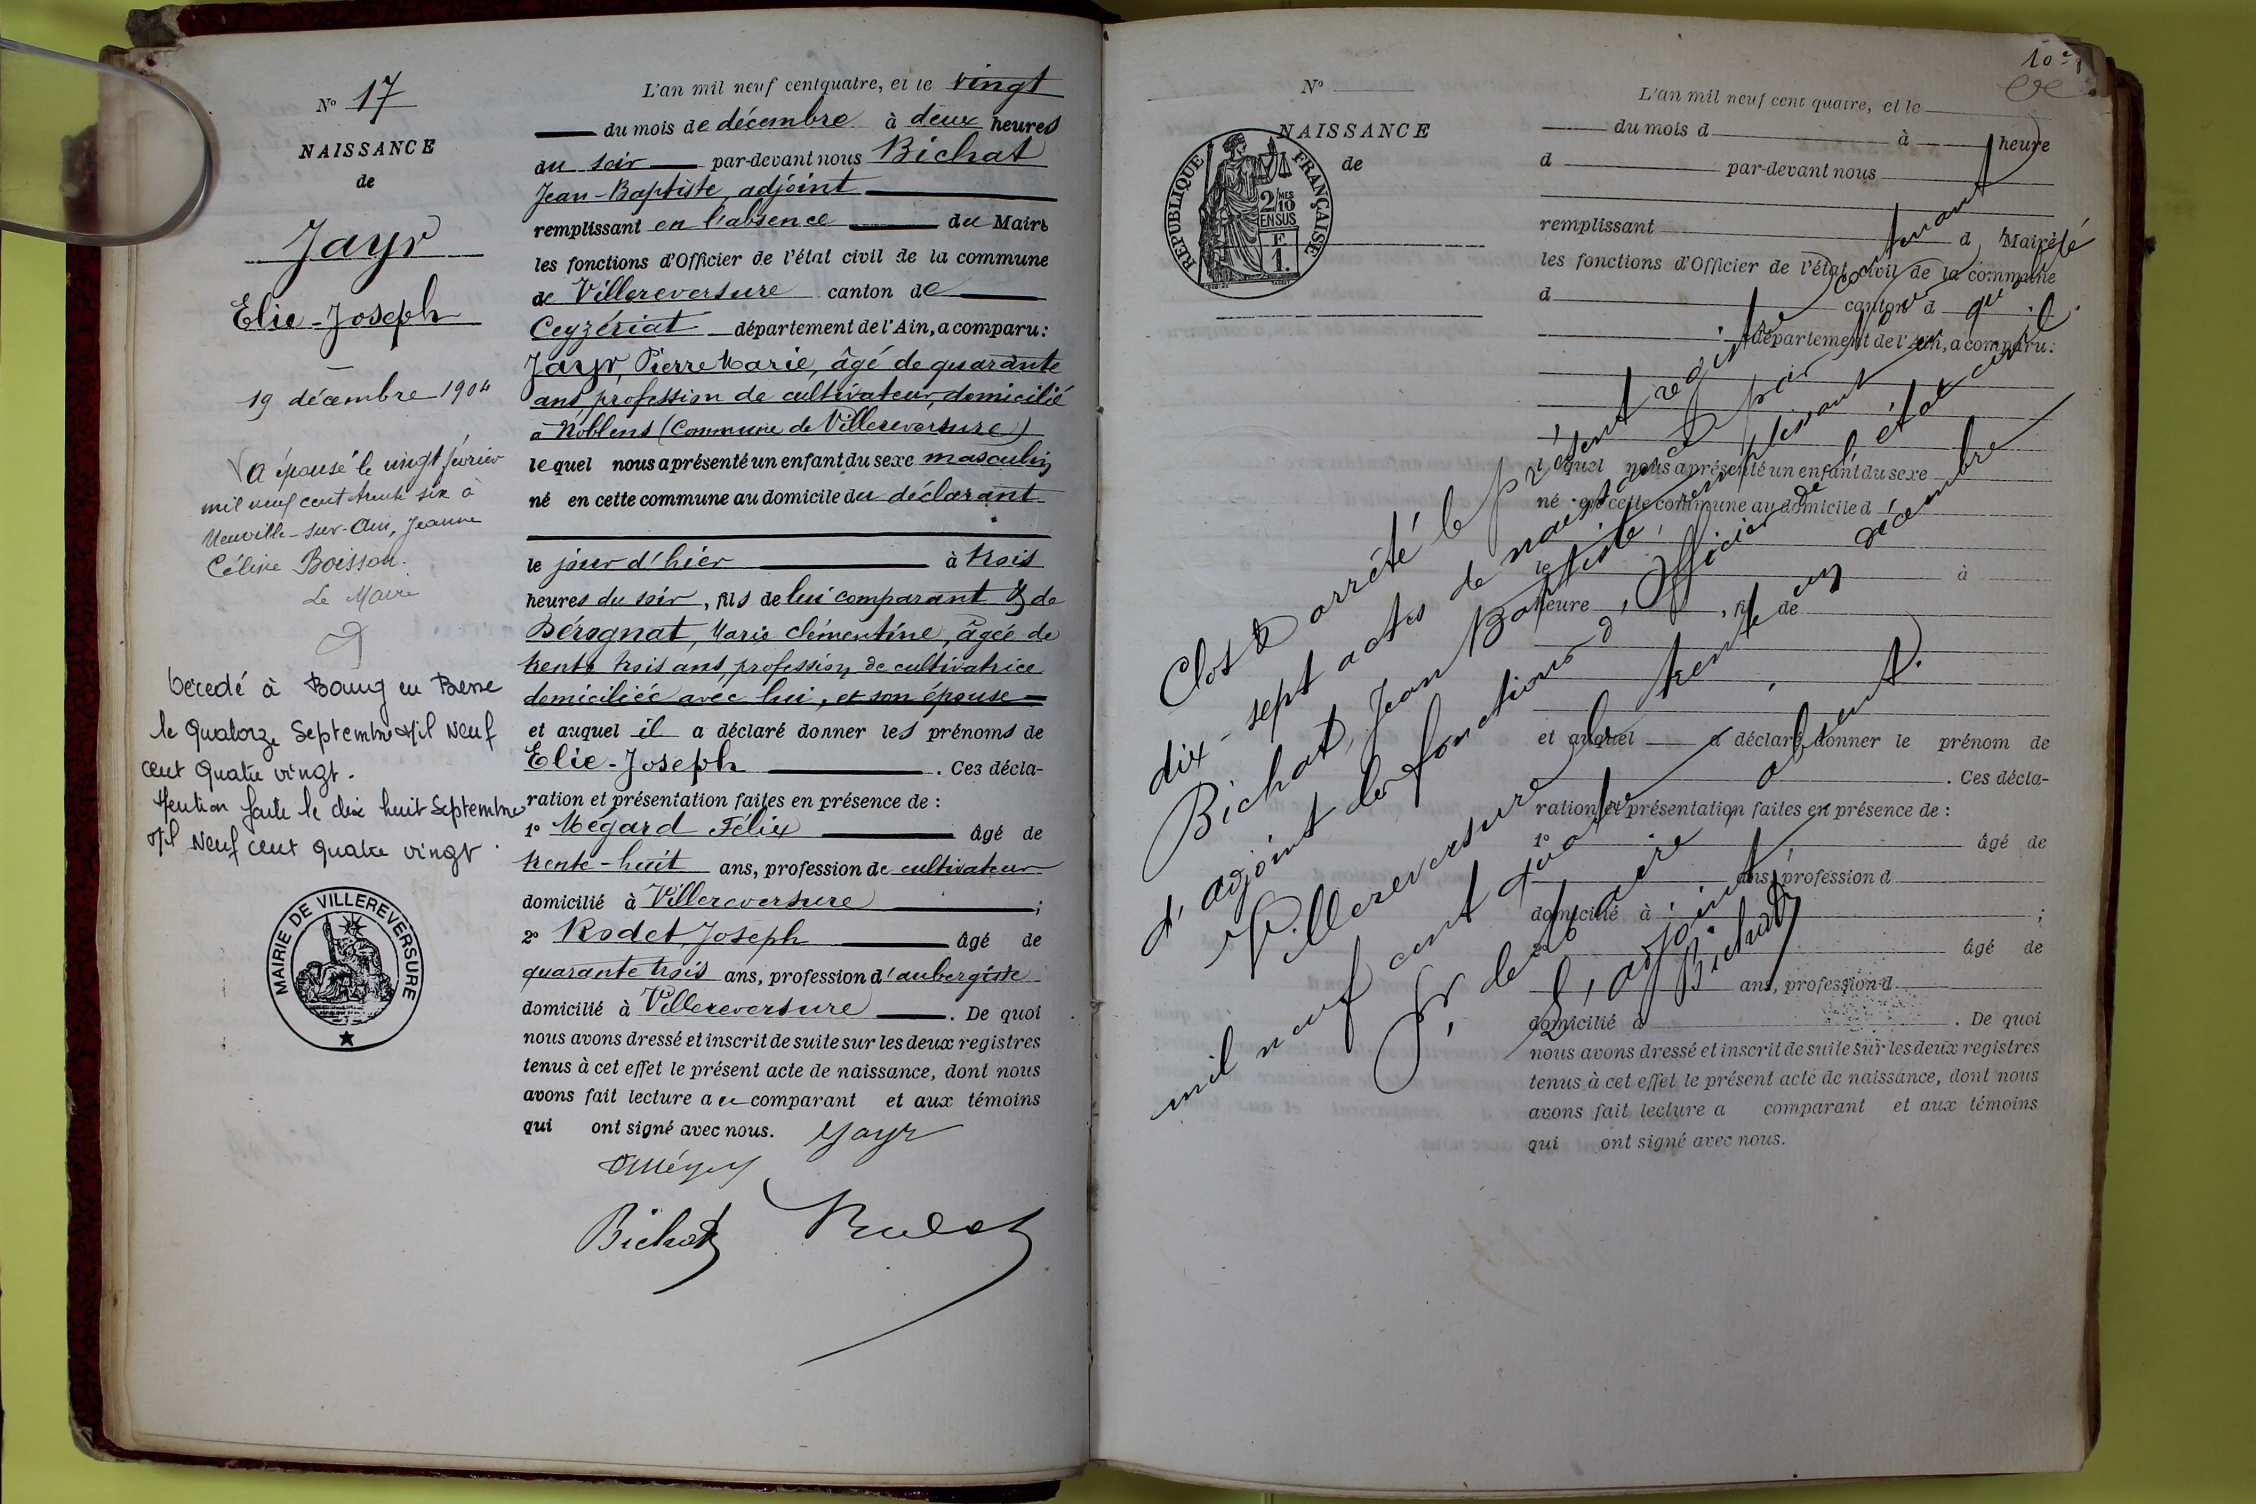 N° 17
NAISSANCE
de
Jayr
Elie-Joseph
19 décembre 1904
A épousé le vingt février
mil neuf cent trente six à
Neuville-sur-Ain, Jeanne
Céline Boisson.
Le Maire
Décédé à Bourg en Bresse
le Quatorze Septembre Mil Neuf
cent Quatre vingt.
Mention faite le dix huit Septembre
Mil Neuf cent quatre vingt.
MAIRIE DE VILLEREVERSURE
L'an mil neuf cent quatre, et le vingt
du mois de décembre à deux heures
du soir par-devant nous Bichat
Jean-Baptiste, adjoint
remplissant en l'absence du Maire
les fonctions d'Officier de l'état civil de la commune
de Villereversure canton de
Ceyzériat département de l'Ain, a comparu:
Jayr, Pierre Marie, âgé de quarante
ans, profession de cultivateur, domicilié
à Noblens (Commune de Villereversure)
lequel nous a présenté un enfant du sexe masculin
né en cette commune au domicile du déclarant
le jour d'hier à trois
heures du soir, fils de lui comparant & de
Péragnat, Marie Clémentine, âgée de
trente trois ans, profession de cultivatrice
domiciliée avec lui, et son épouse
et auquel il a déclaré donner les prénoms de
Elie-Joseph. Ces décla-
ration et présentation faites en présence de :
1° Mégard Félix âgé de
trente-huit ans, profession de cultivateur
domicilié à Villereversure ;
2° Rodet, Joseph âgé de
quarante trois ans, profession d'aubergiste
domicilié à Villereversure. De quoi
nous avons dressé et inscrit de suite sur les deux registres
tenus à cet effet le présent acte de naissance, dont nous
avons fait lecture au comparant et aux témoins
qui ont signé avec nous. Jayr
Bichat Rodet
10e
N°
NAISSANCE
de
RÉPUBLIQUE FRANÇAISE
2/10 MES
EN SUS
F
1.
L'an mil neuf cent quatre, et le
du mois d à heure
d par-devant nous
remplissant d Maire
les fonctions d'Officier de l'état civil de la commune
d canton d
département de l'Ain, a comparu:
lequel nous a présenté un enfant du sexe
né en cette commune au domicile d
le à
heure , fil de
et auquel a déclaré donner le prénom de
. Ces décla-
ration et présentation faites en présence de :
1° âgé de
ans, profession d
domicilié à ;
2° âgé de
ans, profession d
domicilié à . De quoi
nous avons dressé et inscrit de suite sur les deux registres
tenus à cet effet le présent acte de naissance, dont nous
avons fait lecture a comparant et aux témoins
qui ont signé avec nous.
Clos & arrêté le présent registre contenant
dix-sept actes de naissance par nous
Bichat, Jean Baptiste, remplissant en qualité
d'adjoint les fonctions d'Officier de l'état civil.
Villereversure le trente un décembre
mil neuf cent quatre.
Pr le Maire absent.
L'adjoint,
Bichat